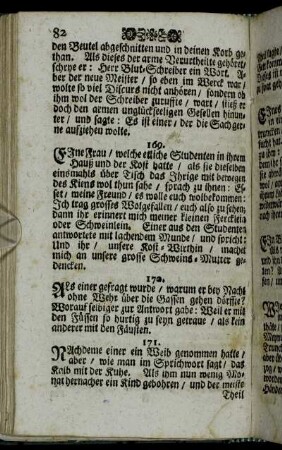 82
den Beutel abgeschnitten und in deinen Korb ge-
than. Als dieses der arme Verurtheilte gehöret/
schrye er: Herr Blut-Schreiber ein Wort. A-
ber der neue Meister / so eben im Werck war/
wolte so viel Discurs nicht anhören / sondern ob
ihm wol der Schreiber zuruffte / wart / stieß er
doch den armen unglückseeligen Gesellen hinun-
ter / und sagte: Es ist einer / der die Sach gar-
ne aufziehen wolte.
169.
Eine Frau / welche etliche Studenten in ihrem
Hauß und der Kost hatte / als sie dieselben
einsmahls über Tisch das Ihrige mit bewegen
des Kiens wol thun sahe / sprach zu ihnen: Es-
set / meine Freund / es walle euch wolbekommen:
Ich trag grosses Wolgefallen / euch also zu sehen;
dann ihr erinnert mich meiner kleinen Ferckleín
oder Schweinlein. Einer aus den Studenten
antwortete mit lachendem Munde / und sprach:
Und ihr / unsere Kost-Wirthin / machet
mich an unsere grosse Schweins-Mutter ge-
dencken.
170.
Als einer gefragt wurde / warum er bey Nacht
ohne Wehr über die Gassen gehen dörffte?
Worauf selbiger zur Antwort gabe: Weil er mit
den Füssen so hurtig zu seyn getraue / als kein
anderer mit den Fäusten.
171.
Nachdeme einer ein Weib genommen hatte /
aber / wie man im Sprichwort sagt / das
Kalb mit der Kuhe. Als ihm nun wenig Mo-
nat hernacher ein Kind gebohren / und der meiste
Theil